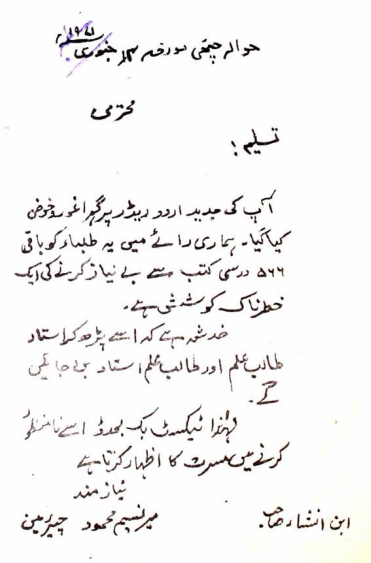 حوالہ چٹھی مورخہ ۴ جنوری ۱۹۷۱ء
محترمی
تسلیم!
آپ کی جدید اردو ریڈر پر گہرا غور و خوض
کیا گیا۔ ہماری رائے میں یہ طلباء کو باقی
۵۶۶ درسی کتب سے بے نیاز کرنے کی ایک
خطرناک کوشش ہے۔
خدشہ ہے کہ اسے پڑھ کر استاد
طالب علم اور طالب علم استاد بن جائیں
گے۔
لہٰذا ٹیکسٹ بک بورڈ اسے نامنظور
کرنے میں مسرت کا اظہار کرتا ہے
نیاز مند
میر نسیم محمود چیئرمین
ابن انشاء صاحب۔